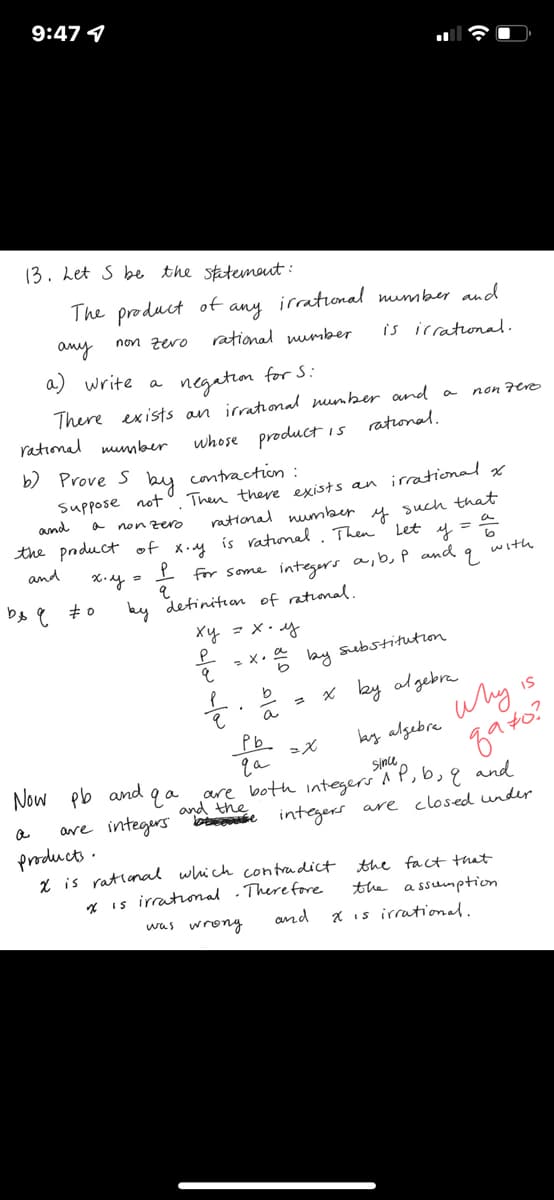 9:47
13. Let S be the statement:
The product of any irrational number and
any non zero rational number is irrational.
a) write a negation for S:
There exists an irrational number and a non zero
rational number whose product is rational.
b) Prove S by contraction :
Suppose not. Then there exists an irrational x
and a non zero rational number y such that
the product of x·y is rational. Then Let y = a/b
and x·y = p/q for some integers a, b, p and q with
b & q ≠ 0 by definition of rational.
xy = x·y
p/q = x· a/b by substitution
p/q · b/a = x by algebra
pb/qa = x by algebra
Why is
qa ≠ 0?
Now pb and qa are both integers since p, b, q and
a are integers and the integers are closed under
products.
x is rational which contradict the fact that
x is irrational. Therefore the assumption
was wrong and x is irrational.